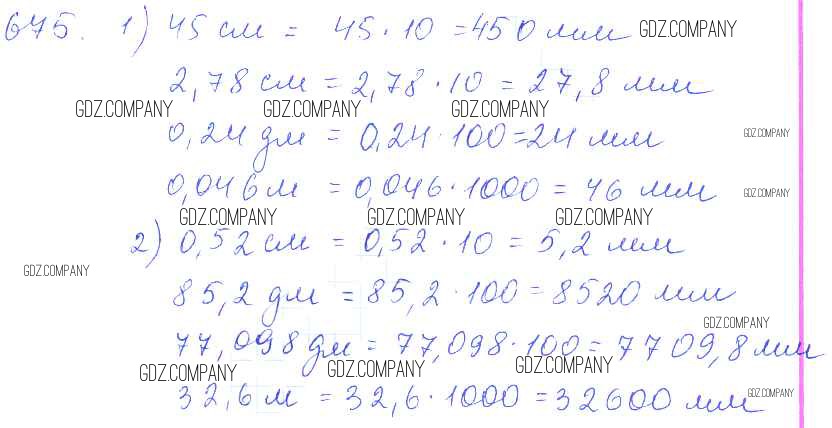 675. 1) 45 см = 45 · 10 = 450 мм GDZ.COMPANY
2,78 см = 2,78 · 10 = 27,8 мм
GDZ.COMPANY GDZ.COMPANY GDZ.COMPANY
0,24 дм = 0,24 · 100 = 24 мм GDZ.COMPANY
0,046 м = 0,046 · 1000 = 46 мм GDZ.COMPANY
GDZ.COMPANY GDZ.COMPANY GDZ.COMPANY
2) 0,52 см = 0,52 · 10 = 5,2 мм
GDZ.COMPANY
85,2 дм = 85,2 · 100 = 8520 мм
GDZ.COMPANY
77,098 дм = 77,098 · 100 = 7709,8 мм
GDZ.COMPANY GDZ.COMPANY GDZ.COMPANY
32,6 м = 32,6 · 1000 = 32600 мм GDZ.COMPANY